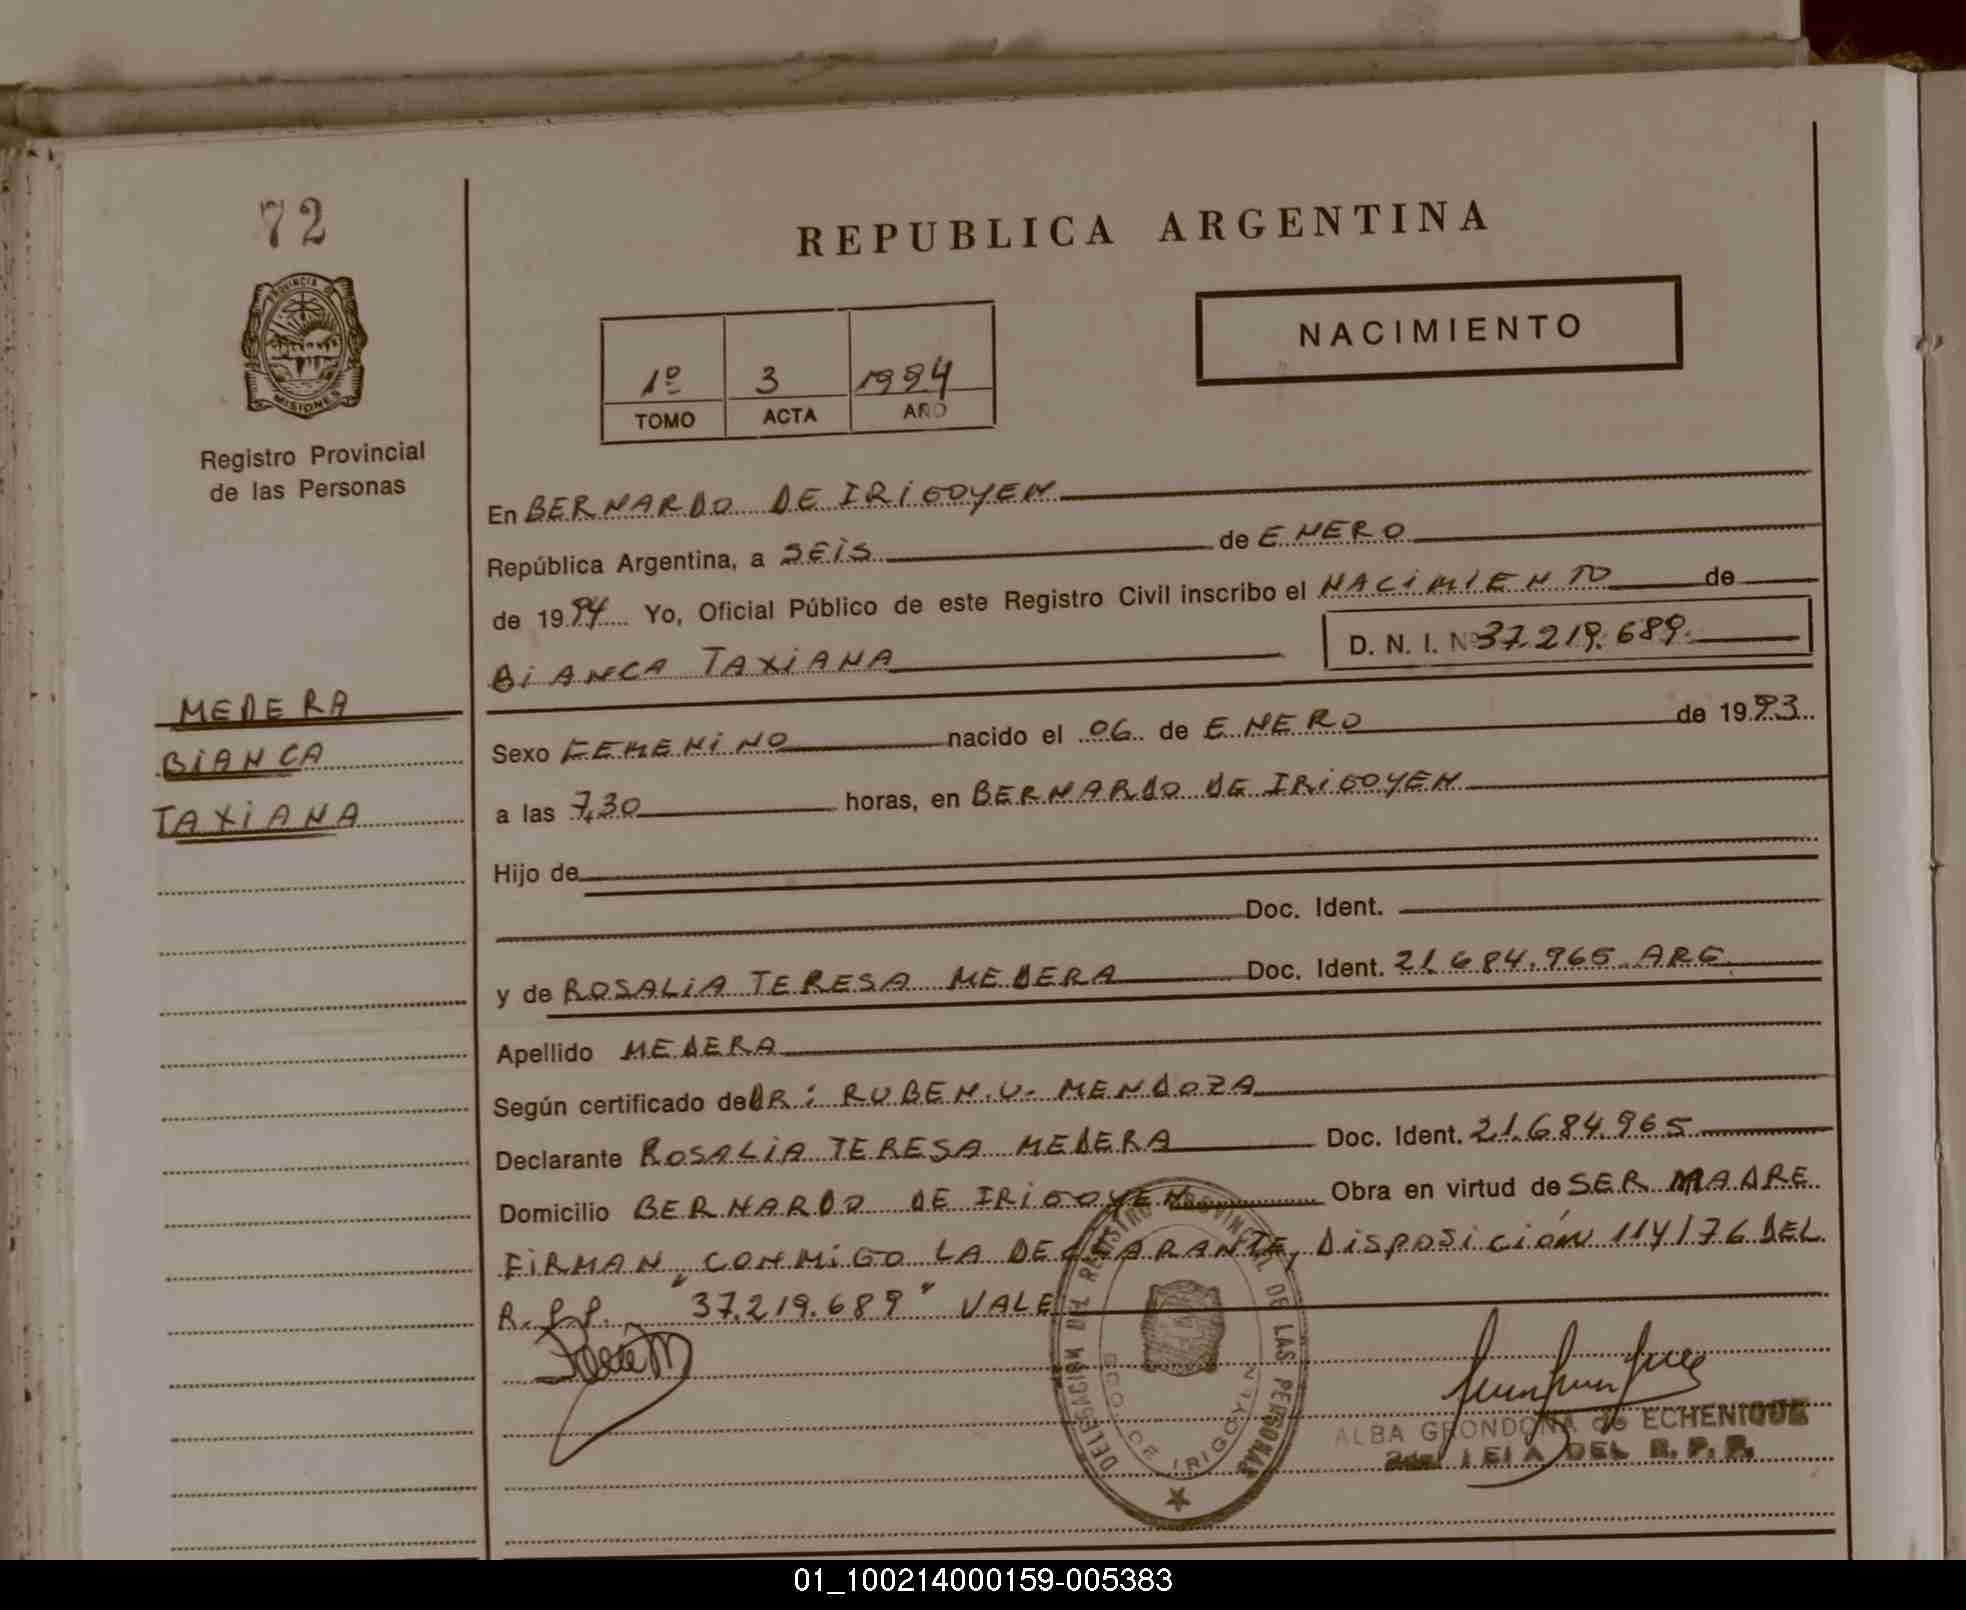 72
REPUBLICA ARGENTINA
PROVINCIA DE
MISIONES
Registro Provincial
de las Personas
1º 3 1994
TOMO ACTA AÑO
NACIMIENTO
En BERNARDO DE IRIGOYEN
República Argentina, a SEIS de ENERO
de 1994 Yo, Oficial Público de este Registro Civil inscribo el NACIMIENTO de
BIANCA TAXIANA D. N. I. Nº 37.219.689.
MEDERA
BIANCA
TAXIANA
Sexo FEMENINO nacido el 06 de ENERO de 1993
a las 7,30 horas, en BERNARDO DE IRIGOYEN
Hijo de
Doc. Ident.
y de ROSALIA TERESA MEDERA Doc. Ident. 21.684.965 ARG.
Apellido MEDERA
Según certificado de DR: RUBEN.U. MENDOZA
Declarante ROSALIA TERESA MEDERA Doc. Ident. 21.684.965
Domicilio BERNARDO DE IRIGOYEN Obra en virtud de SER MADRE
FIRMAN CONMIGO LA DECLARANTE, DISPOSICIÓN 114/76 DEL
R.P.P. "37.219.689" VALE
DELEGACION DEL REGISTRO PROVINCIAL DE LAS PERSONAS
BDO. DE IRIGOYEN
ALBA GRONDONA de ECHENIQUE
DEL R.P.P.
01_100214000159-005383